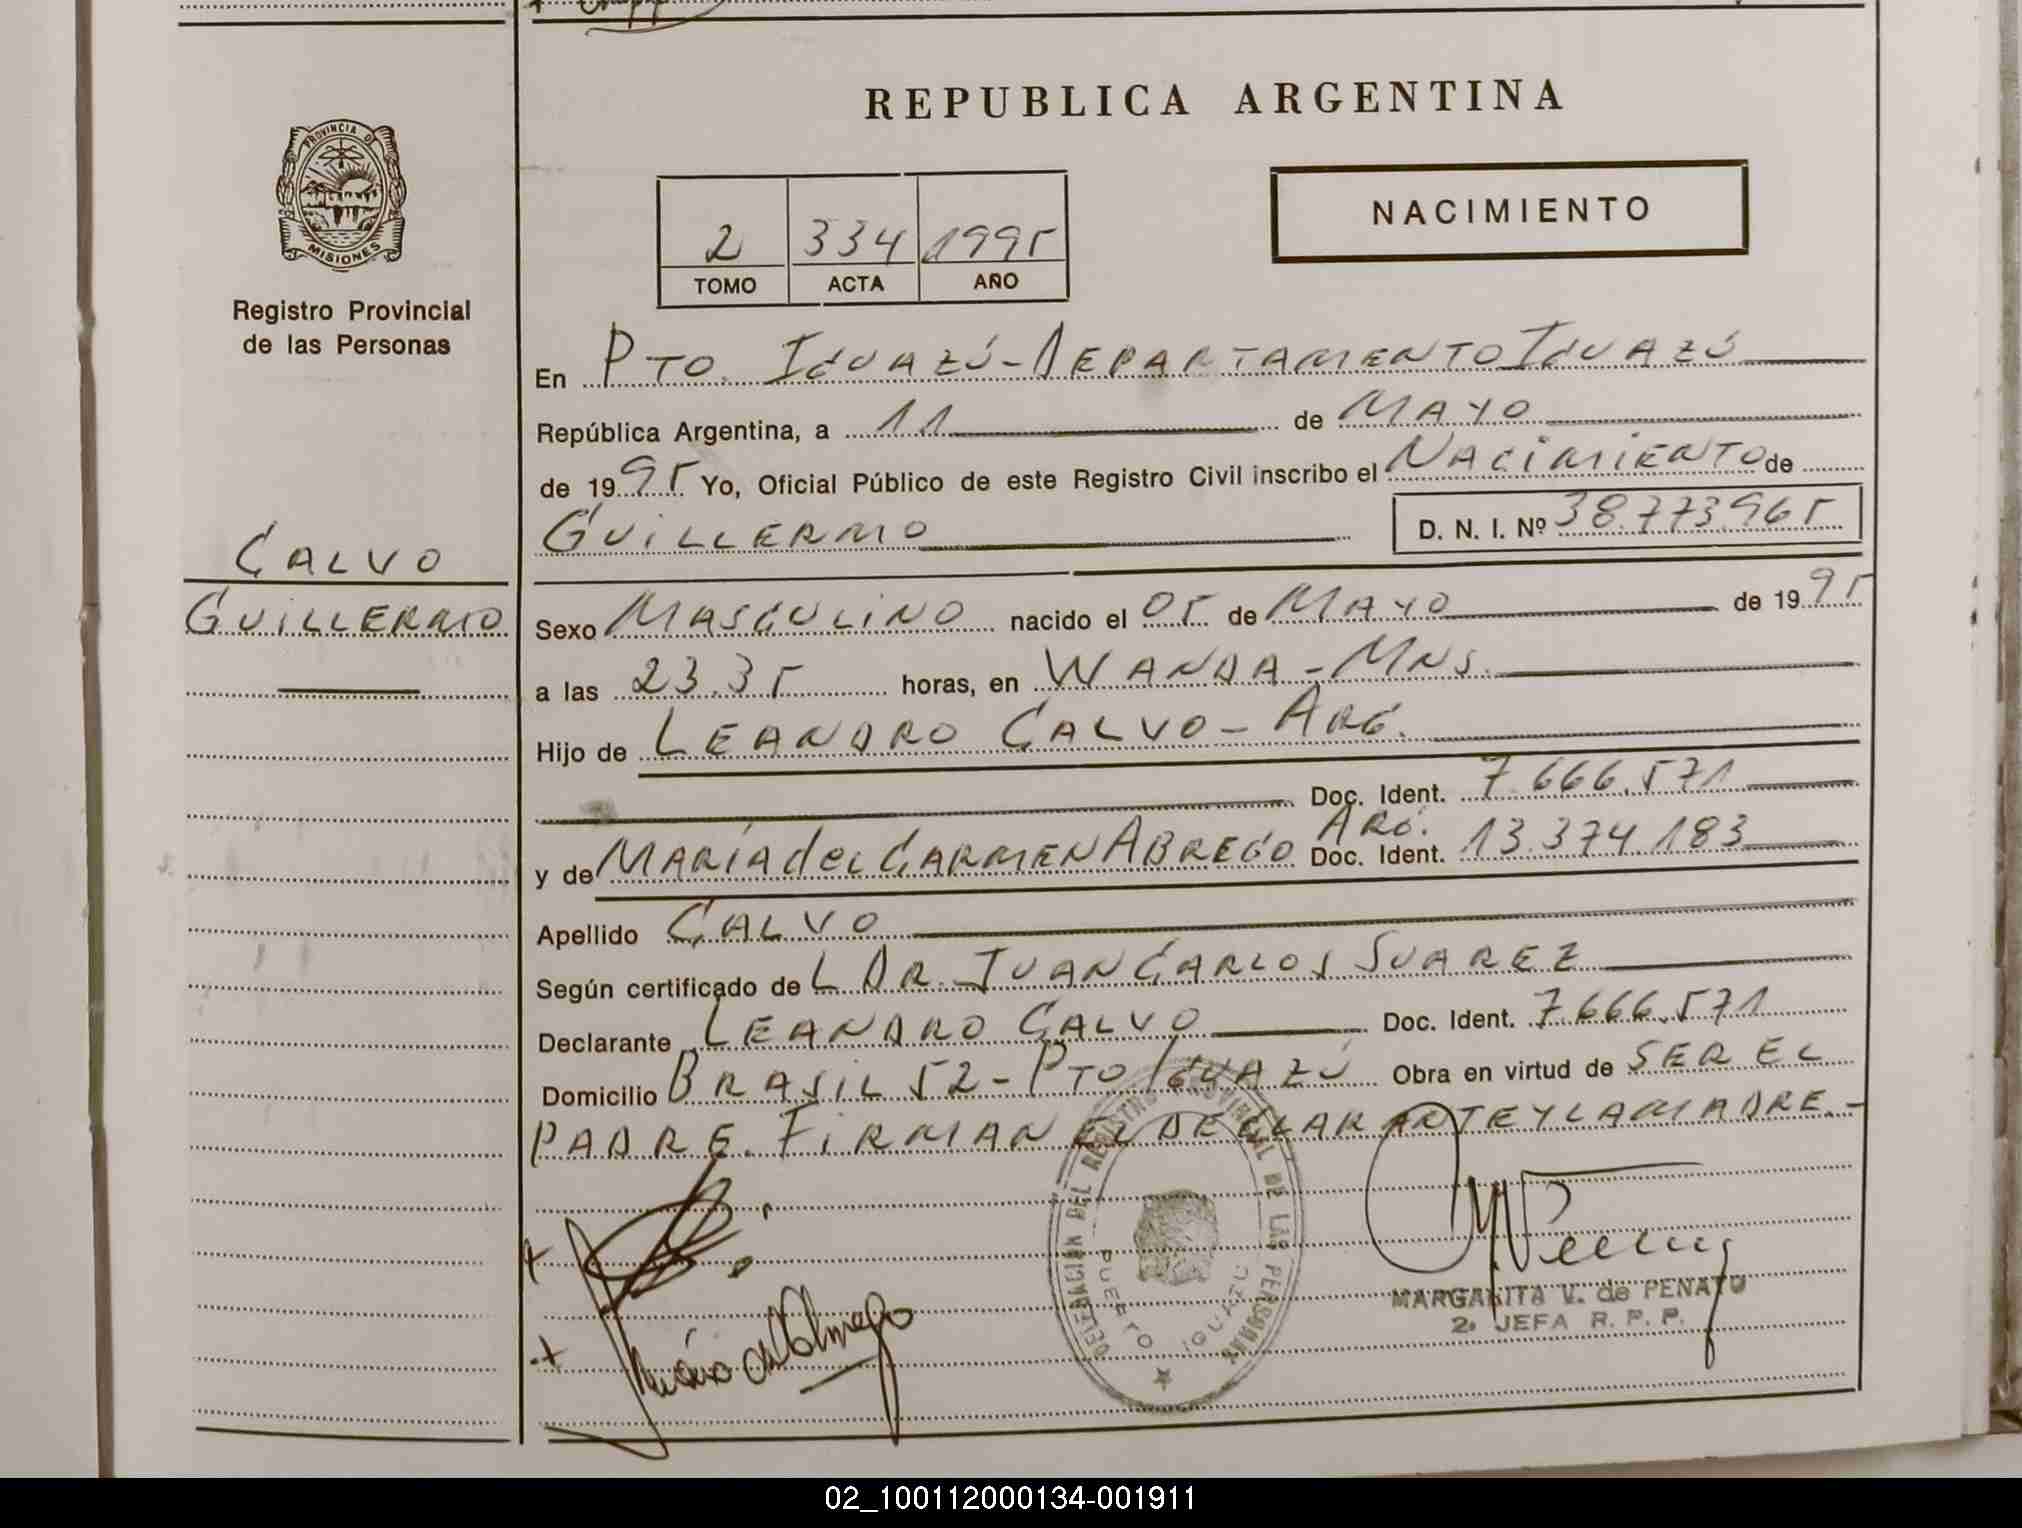 REPUBLICA ARGENTINA
PROVINCIA DE
MISIONES
Registro Provincial
de las Personas
NACIMIENTO
2 334 1995
TOMO ACTA AÑO
En PTO. IGUAZÚ - DEPARTAMENTO IGUAZÚ
República Argentina, a 11 de MAYO
de 1995 Yo, Oficial Público de este Registro Civil inscribo el NACIMIENTO de
GUILLERMO D. N. I. Nº 38.773.965
CALVO
GUILLERMO
Sexo MASCULINO nacido el 05 de MAYO de 1995
a las 23.35 horas, en WANDA - MNS.
Hijo de LEANDRO CALVO - ARG.
Doc. Ident. 7.666.571
ARG.
y de MARÍA del CARMEN ABREGO Doc. Ident. 13.374.183
Apellido CALVO
Según certificado de L DR. JUAN CARLOS SUAREZ
Declarante LEANDRO CALVO Doc. Ident. 7.666.571
Domicilio BRASIL 52 - PTO IGUAZÚ Obra en virtud de SER EL
PADRE. FIRMAN EL DECLARANTE Y LA MADRE.-
DELEGACION DEL REGISTRO PROVINCIAL DE LAS PERSONAS
PUERTO IGUAZU
MARGARITA V. de PENAYO
2ª JEFA R. P. P.
02_100112000134-001911